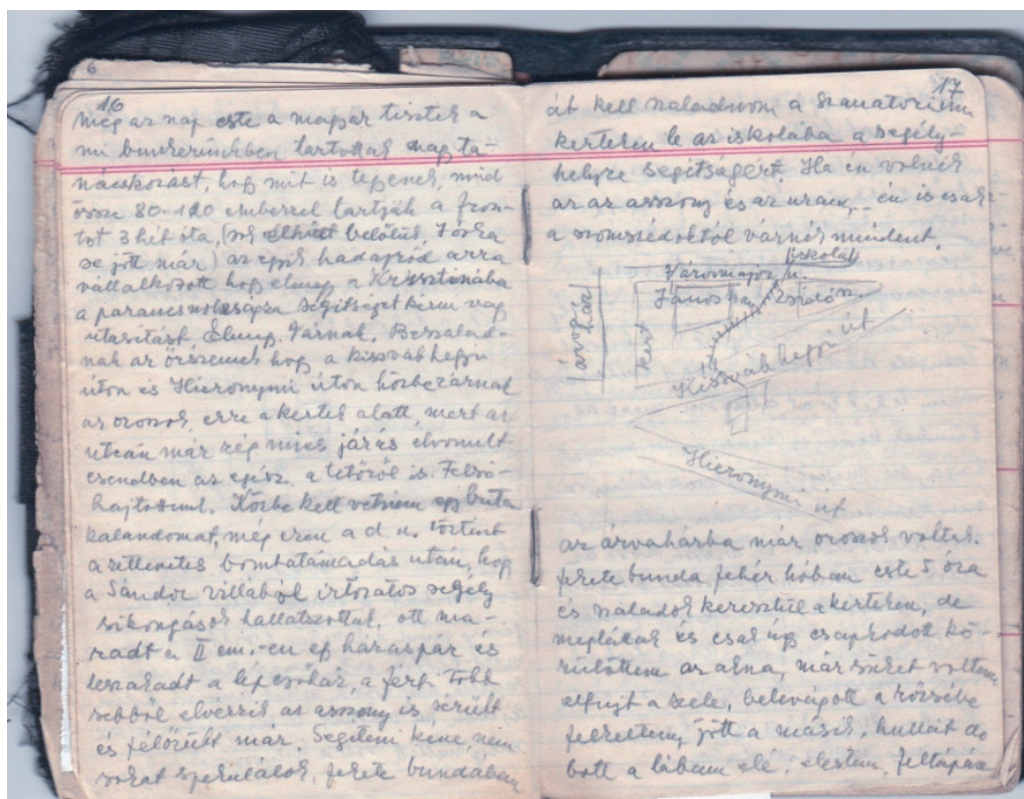 6
16
még az nap este a magyar tisztek a
mi bunkerünkben tartottak nagy ta-
nácskozást, hogy mit is tegyenek, mind
össze 80-120 emberrel tartják a fron-
tot 3 hét óta, (sok elhullt belőlük, Jóska
se jött már) az egyik hadapród arra
vállalkozott hogy elmegy a Krisztinába
a parancsnokságra segítséget kérni vagy
utasítást. Elmegy. Várnak. Beszalad-
nak az őrszemek hogy a kissváb hegyi
úton és Hieronymi úton közbezárnak
az oroszok, erre a kertek alatt, mert az
utcán már rég nincs járás elvonult
csendben az egész, a tetőről is. Felső-
hajtottunk. Közbe kell vetnem egy buta
kalandomat, még ezen a d. u. történt
a rettenetes bombatámadás után, hogy
a Sándor villából irtózatos segély
sikongások hallatszottak, ott ma-
radt a II em.-en egy házaspár és
leszakadt a lépcsőház, a férj több
sebből elvérzik az asszony is sérült
és félőrült már. Segíteni kéne, nem
sokat spekulálok, fekete bundában
17
át kell szaladnom a Szanatorium
kerteken le az iskolába a segély-
helyre segítségért. Ha én volnék
az az asszony és az uram,.. én is csak
a szomszédoktól várnék mindent.
iskola
Városmajor u.
János szan. Zsidó sz.
árvaház
kert
Kissváb hegyi út
Hieronymi út
az árvaházba már oroszok voltak.
fekete bunda fehér hóban este 5 óra
és szaladok keresztül a kerteken, de
meglátnak és csak úgy csapkodott kö-
rülöttem az akna, már süket voltam
elfujt a szele, belevágott a rőzsébe
felkeltem, jött a másik, hullát do
bott a lábam elé, elestem, feltápász